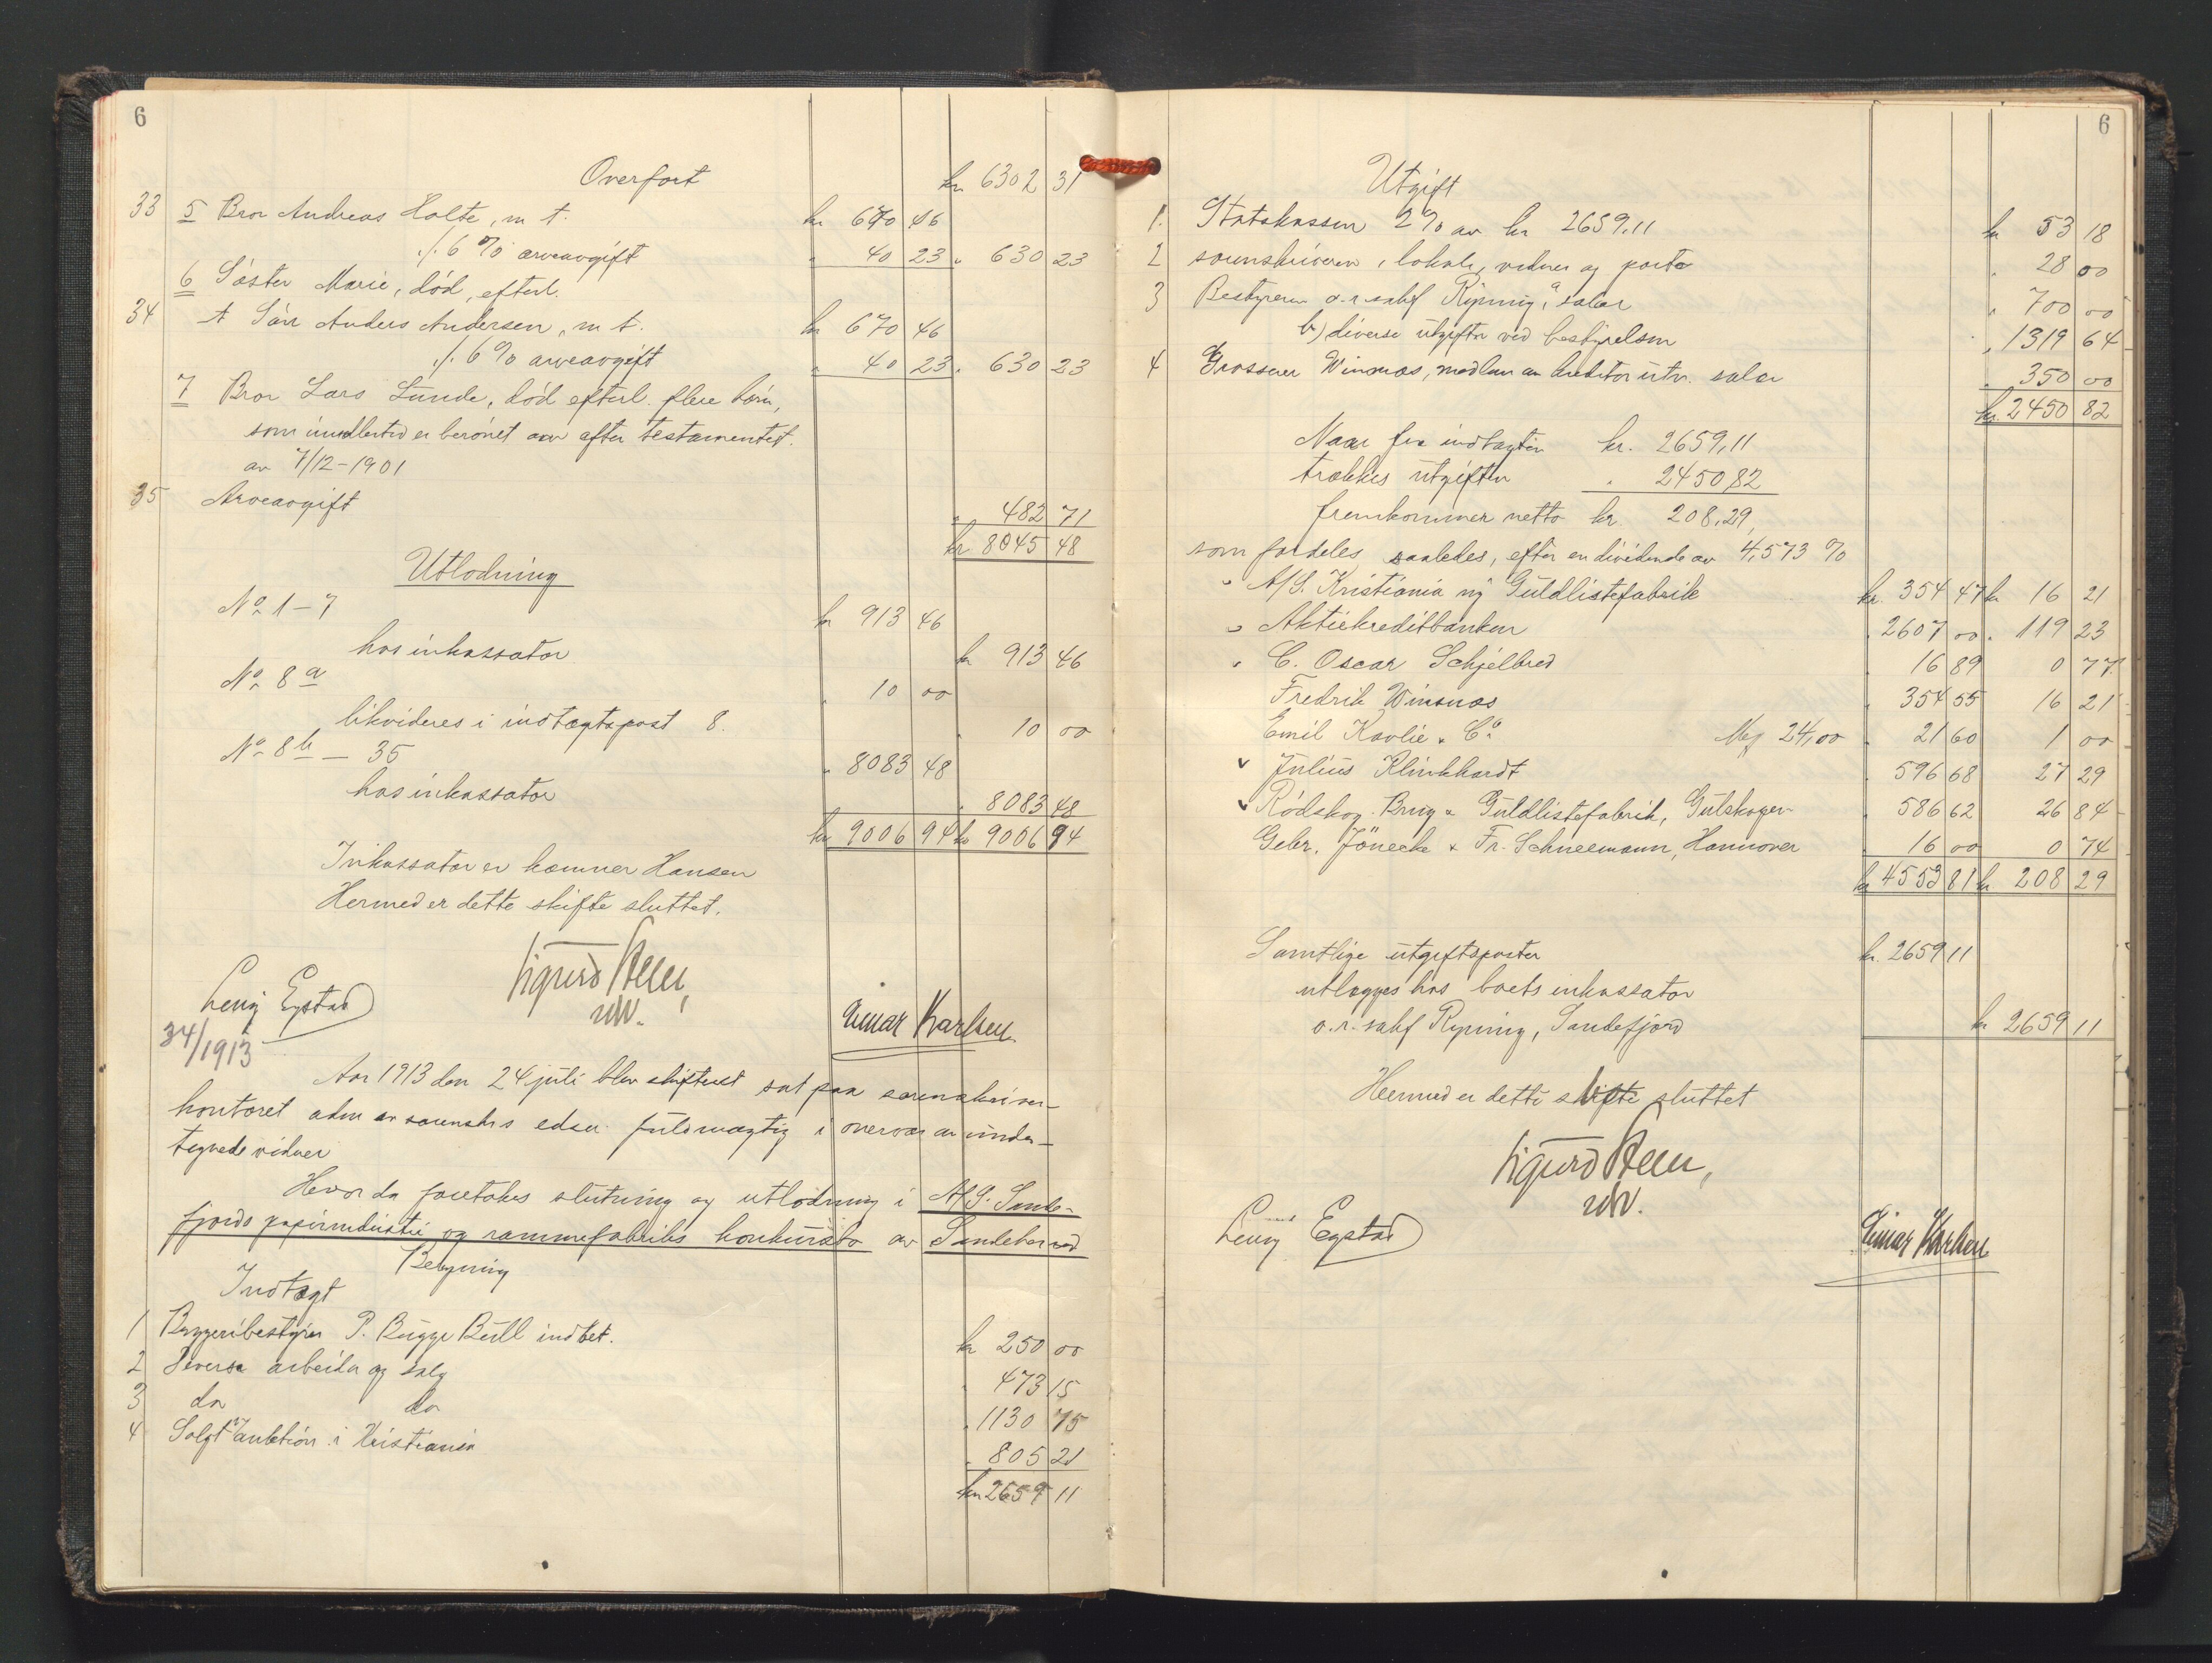 6
Overført kr 6302 31
33 5 Bror Andreas Holte, m t. kr 670 46
./. 6 % arveavgift " 40 23 " 630 23
6 Søster Marie, død, efterl.
34 A Søn Anders Andersen, m t. kr 670 46
./. 6 % arveavgift " 40 23 " 630 23
7 Bror Lars Lunde, død efterl. flere børn,
som imidlertid er berøvet arv efter testamentet
av 7/12-1901
35 Arveavgift " 482 71
kr 8045 48
Utlodning
No 1-7 kr 913 46
hos inkassator kr 913 46
No 8 a " 10 00
likvideres i indtægtspost 8. " 10 00
No 8 b — 35 " 8083 48
hos inkassator " 8083 48
kr 9006 94 kr 9006 94
Inkassator er kemner Hansen
Hermed er dette skifte sluttet.
Sigurd
Egstad
Einar Karlsen
34/1913
Aar 1913 den 24 juli blev skifteret sat paa sorenskriver-
kontoret adm av sorenskrs edsv. fuldmægtig i overvær av under-
tegnede vidner
Hvor da foretokes slutning og utlodning i A/S. Sande-
fjords papirindustri og rammefabriks konkursbo av Sandeherred
Beregning
Indtægt
1 Bryggeribestyrer P. Bugge Bull indbet. kr 250 00
2 Diverse arbeider og salg " 473 15
3 do do " 1130 75
4 Solgt v/ auktion i Kristiania " 805 21
kr 2659 11
6
Utgift
1. Statskassen 2 % av kr 2659,11 kr 53 18
2 sorenskriveren, lokale, vidner og porto " 28 00
3 Bestyreren o.r.sakf Ryning, a salær " 700 00
b) diverse utgifter ved bestyrelsen " 1319 64
4 Grosserer Winsnæs, medlem av kreditorutv. salær " 350 00
kr. 2450 82
Naar fra indtægten kr. 2659,11
trækkes utgiften " 2450,82
fremkommer netto kr. 208,29,
som fordeles saaledes, efter en dividende av 4,573 %
A/S. Kristiania ny Guldlistefabrik kr. 354 47 kr 16 21
Aktiekreditbanken " 2607 00 " 119 23
C. Oscar Schjelbred " 16 89 0 77
Fredrik Winsnæs " 354 55 16 21
Emil Kavlie & Co Mrf 24,00 " 21 60 1 00
Julius Klinkhardt " 596 68 27 29
Rødskog Brug & Guldlistefabrik, Gulskogen " 586 62 26 84
Gebr. Jänecke & Fr. Schneemann, Hannover " 16 00 0 74
kr 4553 81 kr 208 29
Samtlige utgiftsposter kr. 2659 11
utlægges hos boets inkassator
o.r.sakf Ryning, Sandefjord kr 2659 11
Hermed er dette skifte sluttet
Sigurd
Egstad
Einar Karlsen